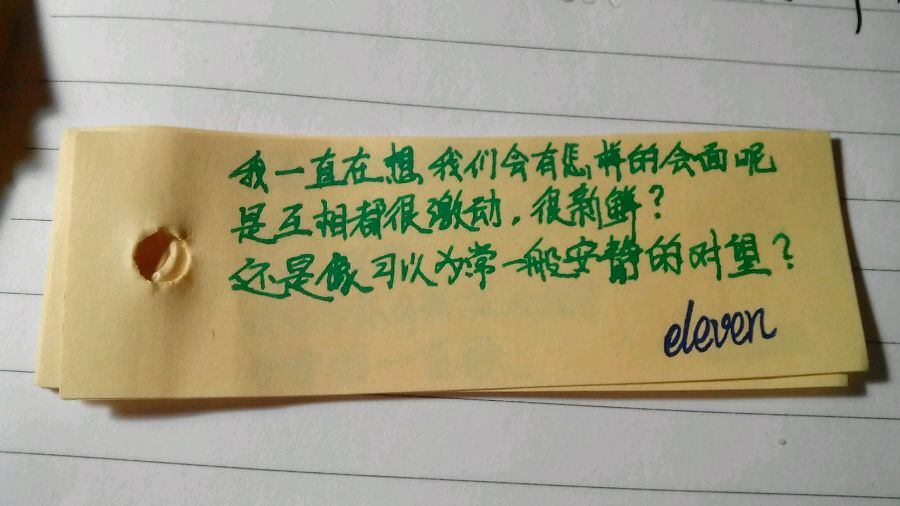 我一直在想我们会有怎样的会面呢
是互相都很激动，很新鲜？
还是像习以为常一般安静的对望？
eleven